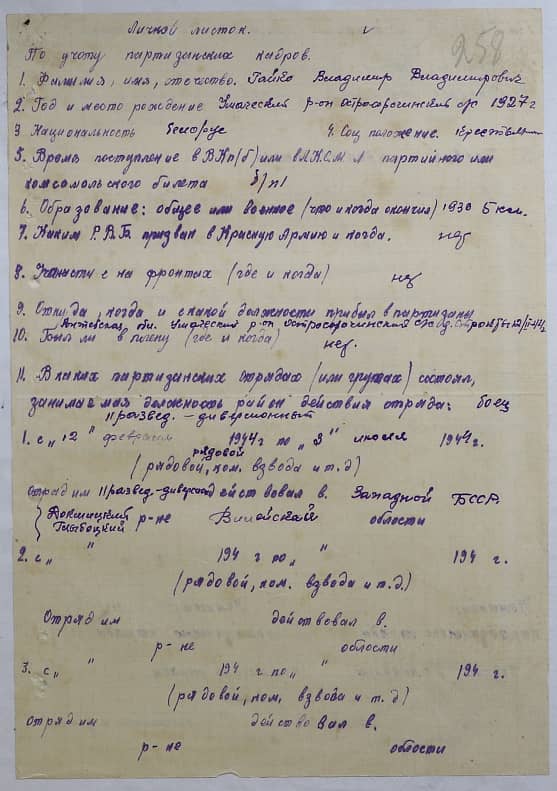 Личной листок.
258
По учоту партизанских кадров.
1. Фамилия, имя, отечество. Гайко Владимир Владимирович
2. Год и место рождение Ушачский р-он Островочинский с/с 1927 г
3. Национальность белорус 4. Соц положение.
5. Время поступление в ВКп(б) или ВЛКСМ № партийного или
комсомольского билета б/п
6. Образование: общее или военное (что и когда окончил) 1936 5 кл.
7. Каким Р.В.Б призван в Красную Армию и когда. нет
8. Участие на фронтах (где и когда) нет
9. Откуда, когда и с какой должности прибыл в партизаны
обл. Ушачский р-он
10. Был ли в плену (где и когда) нет.
11. В каких партизанских отрядах (или групах) состоял,
занимаемая должность район действия отряда: боец
11 развед. – диверсионный
1. с „12" февраля 1944 г по „3" июля 1944 г.
рядовой
(рядовой, ком. взвода и т.д)
отряд им 11 развед-диверсион действовал в. Западной БССР.
Докшицкий
Глыбоцкий р-не Вилейской области
2. с „ " 194 г по „ " 194 г.
(рядовой, ком. взвода и т.д.)
Отряд им действовал в.
р-не области
3. с „ " 194 г по „ " 194 г.
(рядовой, ком. взвода и т.д)
отряд им действовал в.
р-не области